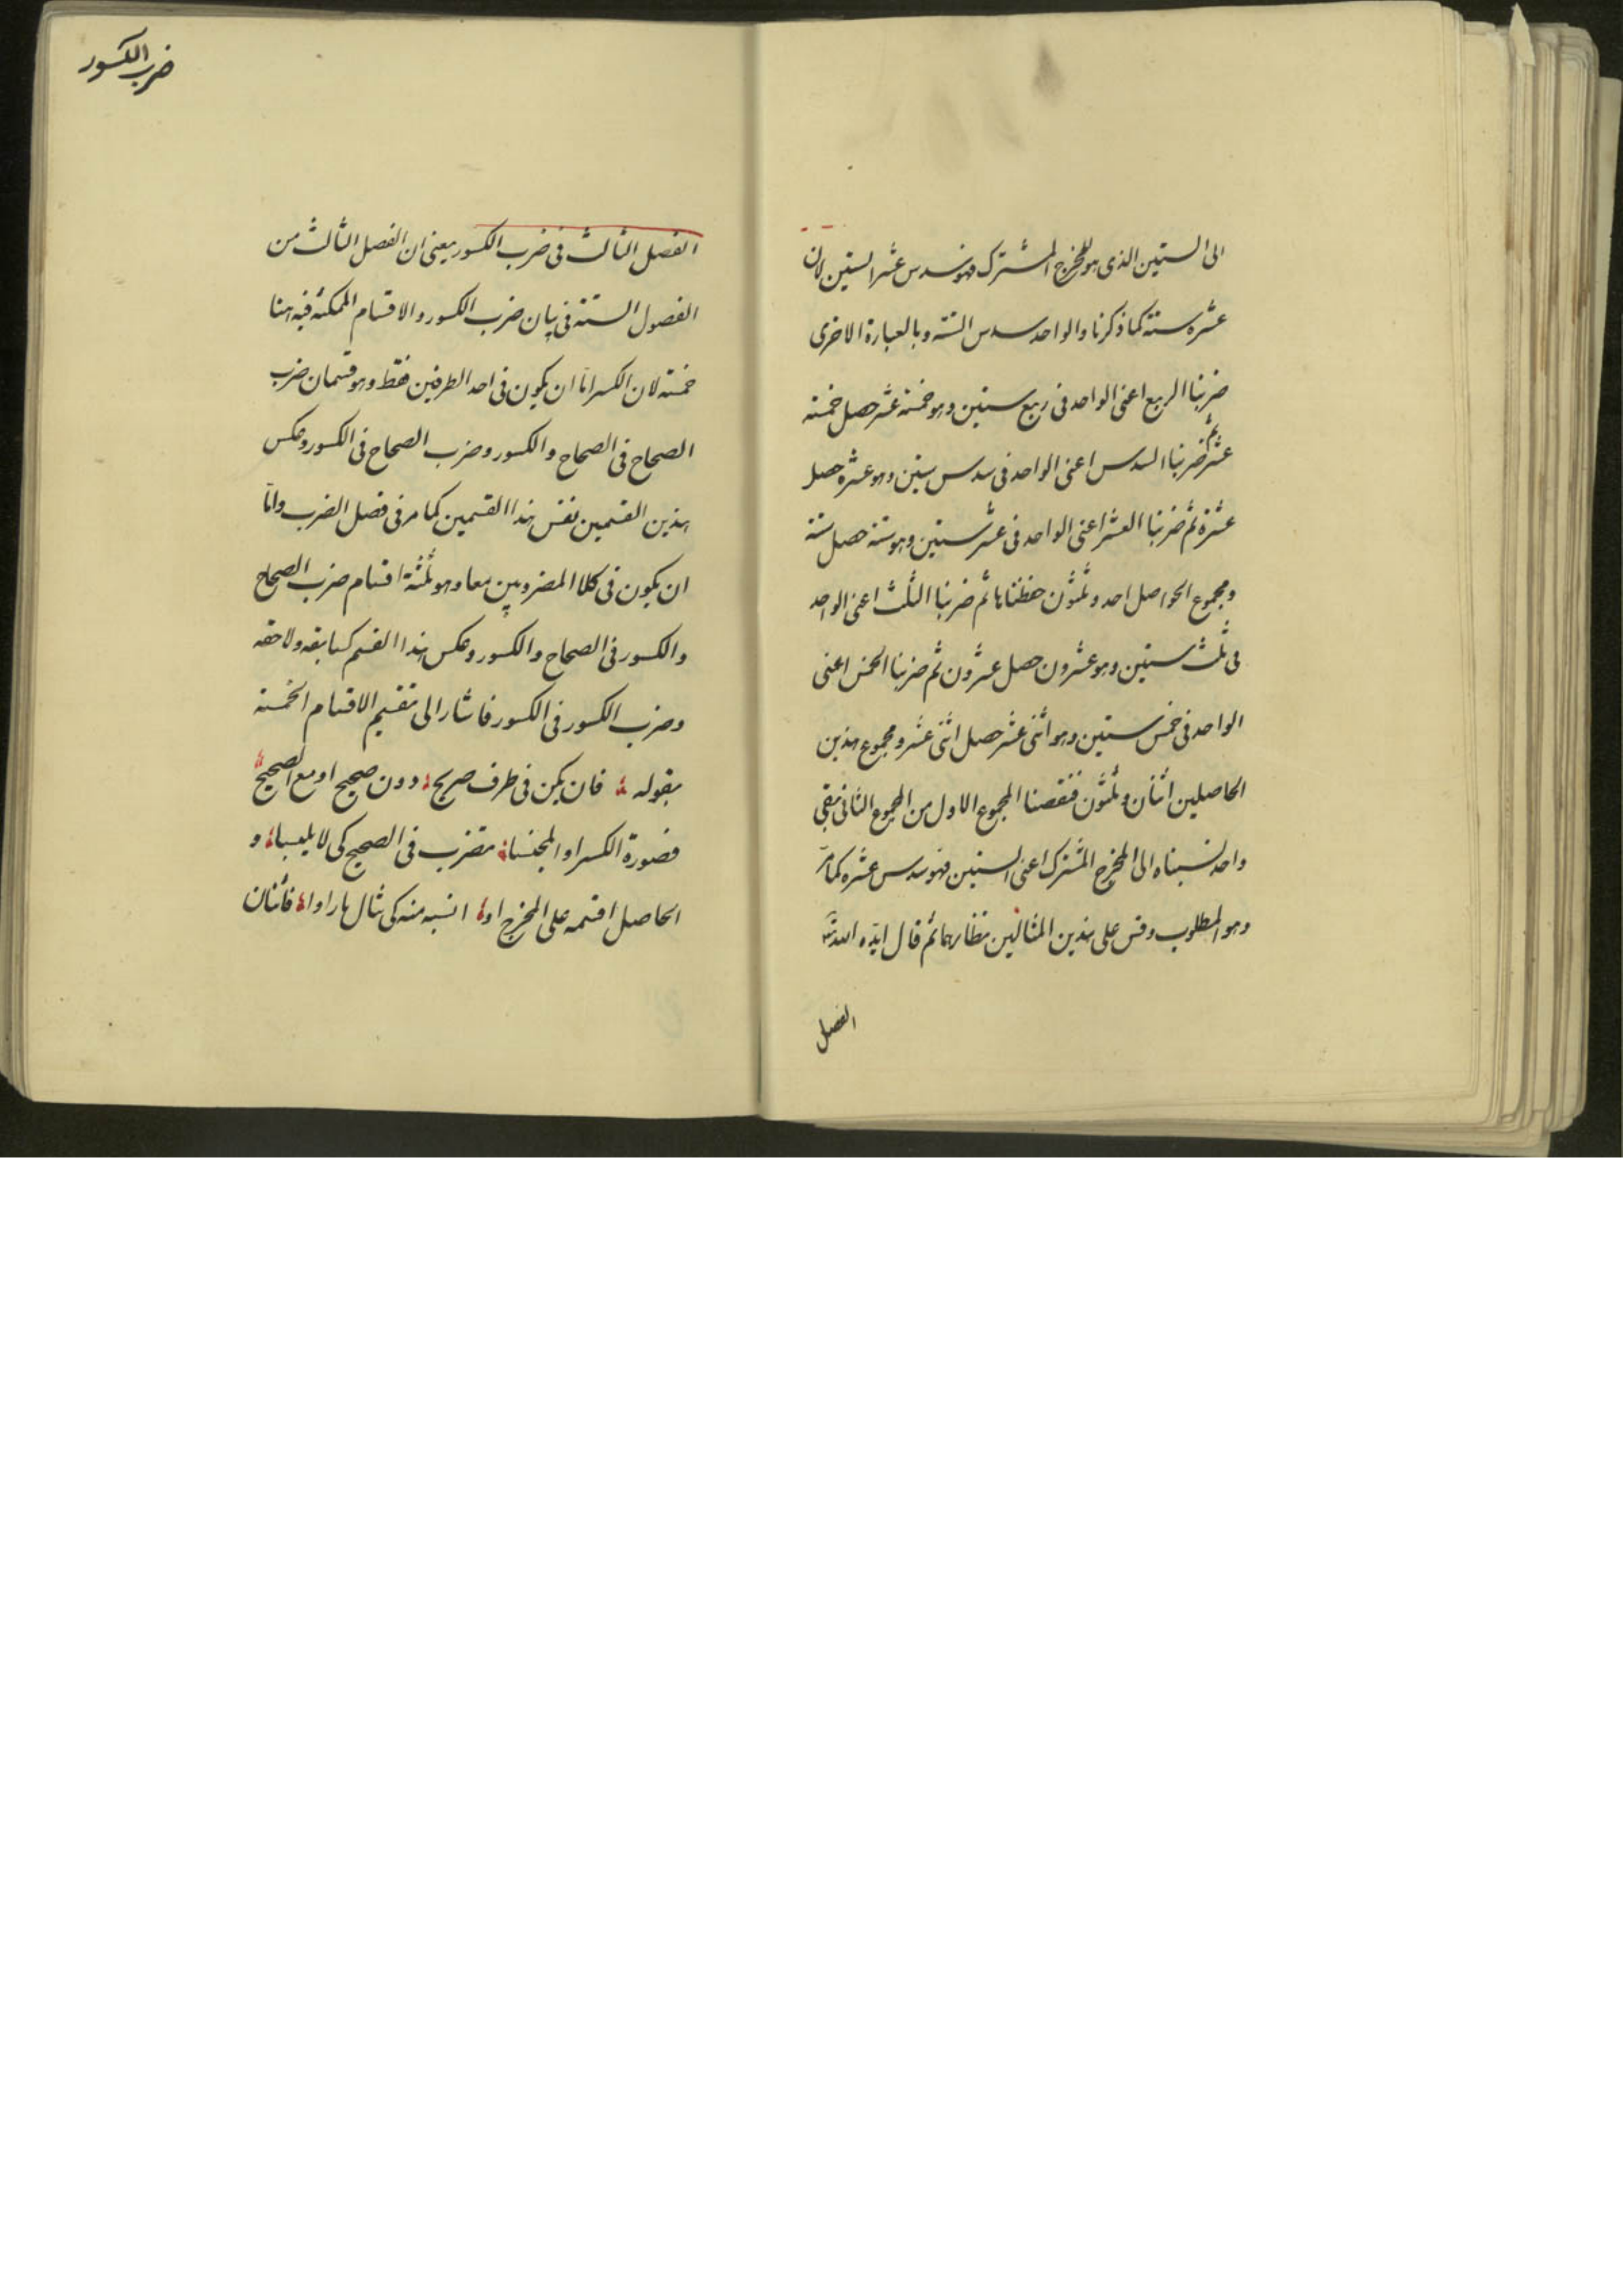 الى الستين الذى هو المخرج المشترك فهو سدس عشر الستين لان
عشره ستة كما ذكرنا والواحد سدس الستة وبالعبارة الاخرى
ضربنا الربع اعنى الواحد فى ربع ستين وهو خمسة عشر حصل خمسة
عشر ثم ضربنا السدس اعنى الواحد فى سدس ستين وهو عشرة حصل
عشرة ثم ضربنا العشر اعنى الواحد فى عشر ستين وهو ستة حصل ستة
ومجموع الحواصل احد وثلثون حفظناها ثم ضربنا الثلث اعنى الواحد
فى ثلث ستين وهو عشرون حصل عشرون ثم ضربنا الخمس اعنى
الواحد فى خمس ستين وهو اثنى عشر حصل اثنى عشر ومجموع هذين
الحاصلين اثنان وثلثون فنقصنا المجموع الاول من المجموع الثانى فبقى
واحد نسبناه الى المخرج المشترك اعنى الستين فهو سدس عشره كما مرّ
وهو المطلوب وقس على هذين المثالين نظائرهما ثم قال ايّده الله
الفصل
ضرب الكسور
الفصل الثالث فى ضرب الكسور يعنى ان الفصل الثالث من
الفصول الستة فى بيان ضرب الكسور والاقسام الممكنة فيه هنا
خمسة لان الكسر امّا ان يكون فى احد الطرفين فقط وهو قسمان ضرب
الصحاح فى الصحاح والكسور وضرب الصحاح فى الكسور وعكس
هذين القسمين نفس هذا القسمين كما مر فى فصل الضرب وامّا
ان يكون فى كلا المضروبين معا وهو ثلثة اقسام ضرب الصحاح
والكسور فى الصحاح والكسور وعكس هذا القسم كسابقه ولاحقه
وضرب الكسور فى الكسور فاشار الى تقسيم الاقسام الخمسة
بقوله فان يكن فى طرف صريح دون صحيح او مع الصحيح
فصورة الكسر او المجنسا تضرب فى الصحيح كى لا يلبسا و
الحاصل اقسمه على المخرج او انسبه منه كى مثال ها راوا فاثنان